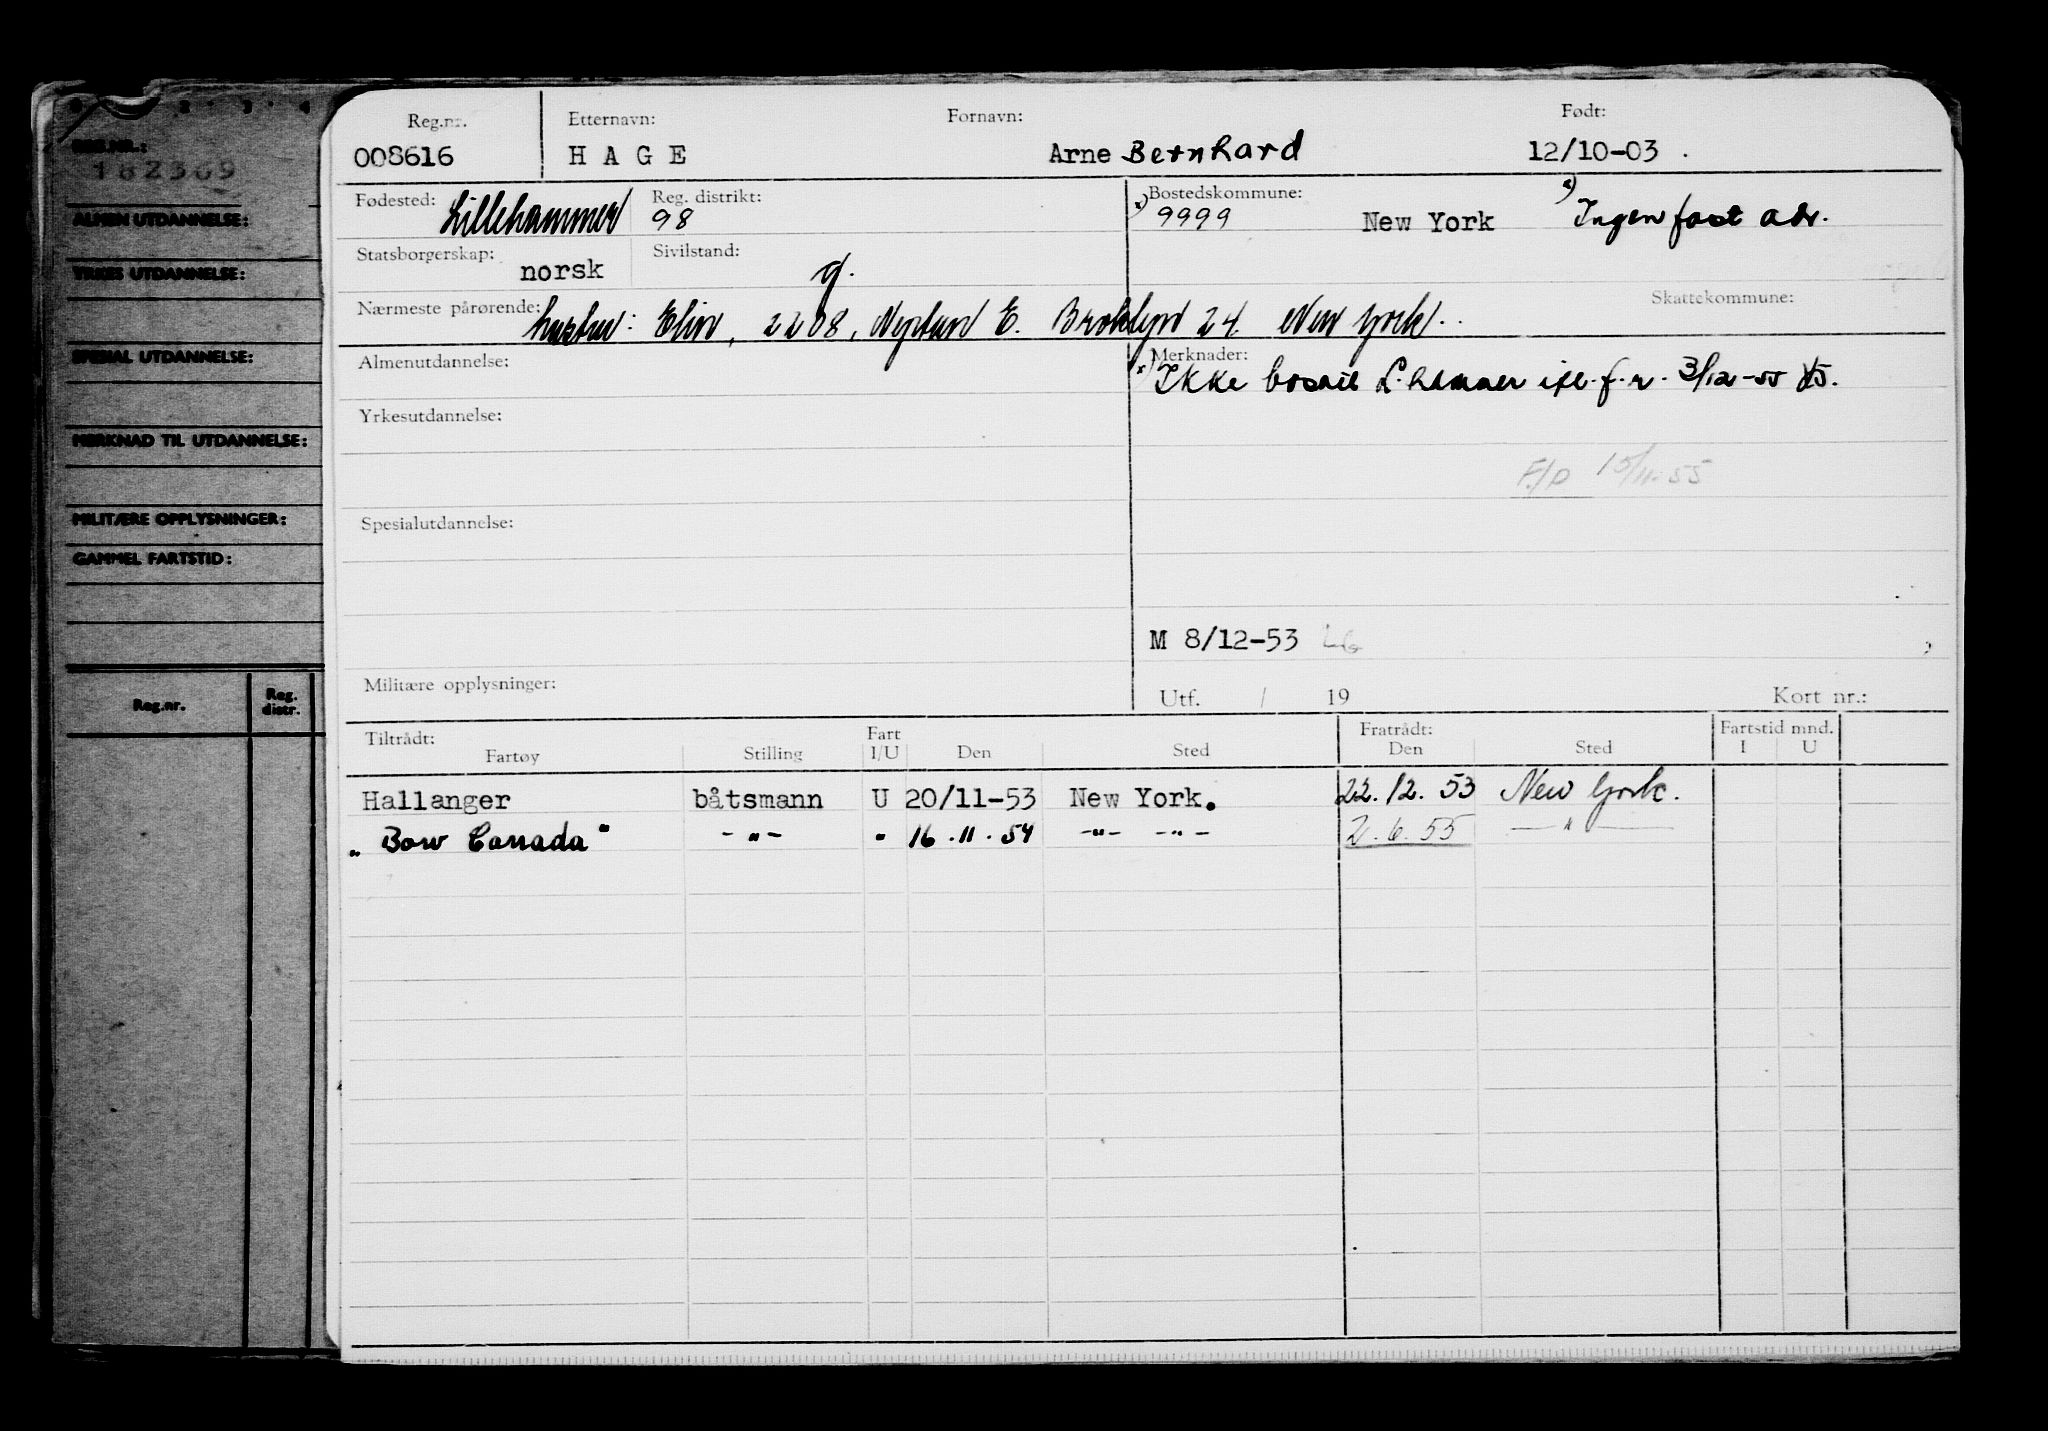 REG.NR.:
182369
ALMEN UTDANNELSE:
YRKES UTDANNELSE:
SPESIAL UTDANNELSE:
MERKNAD TIL UTDANNELSE:
MILITÆRE OPPLYSNINGER:
GAMMEL FARTSTID:
Reg.nr. Reg. distr.
Reg.nr. Etternavn: Fornavn: Født:
008616 HAGE Arne Bernhard 12/10-03 .
Fødested: Lillehammer Reg. distrikt: 98 Bostedskommune: x) 9999 New York x) Ingen fast adr.
Statsborgerskap: norsk Sivilstand: g.
Nærmeste pårørende: hustru: Elin, 2208, Neptun E. Broklyn 24. New York. Skattekommune:
Almenutdannelse: Merknader:
x) Ikke bosatt L.hammer ifl. f.r. 3/12-55
Yrkesutdannelse:
F/O 15/11-55
Spesialutdannelse:
M 8/12-53
Militære opplysninger: Utf. / 19 Kort nr.:
Tiltrådt: Fart Fratrådt: Fartstid mnd.
Fartøy Stilling I/U Den Sted Den Sted I U
Hallanger båtsmann U 20/11-53 New York. 22.12.53 New York.
„Bow Canada" -"- " 16.11.54 -"- -"- 2.6.55 — " —